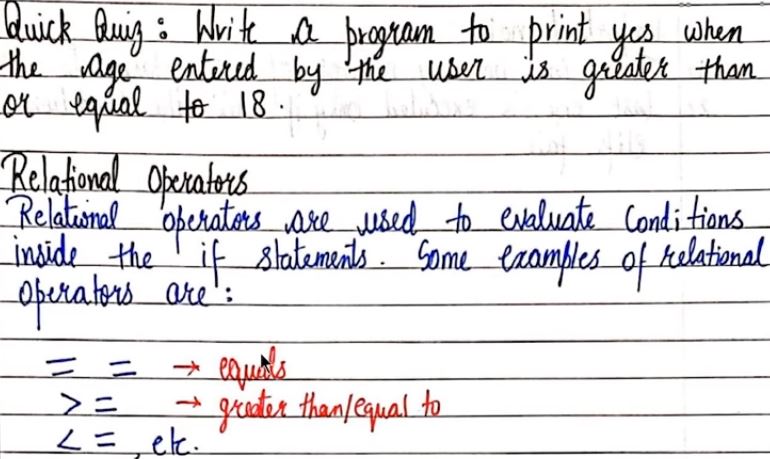 Quick Quiz : Write a program to print yes when
the age entered by the user is greater than
or equal to 18.
Relational Operators
Relational operators are used to evaluate Conditions
inside the if statements. Some examples of relational
operators are :
= = → equals
> = → greater than/equal to
< = , etc.